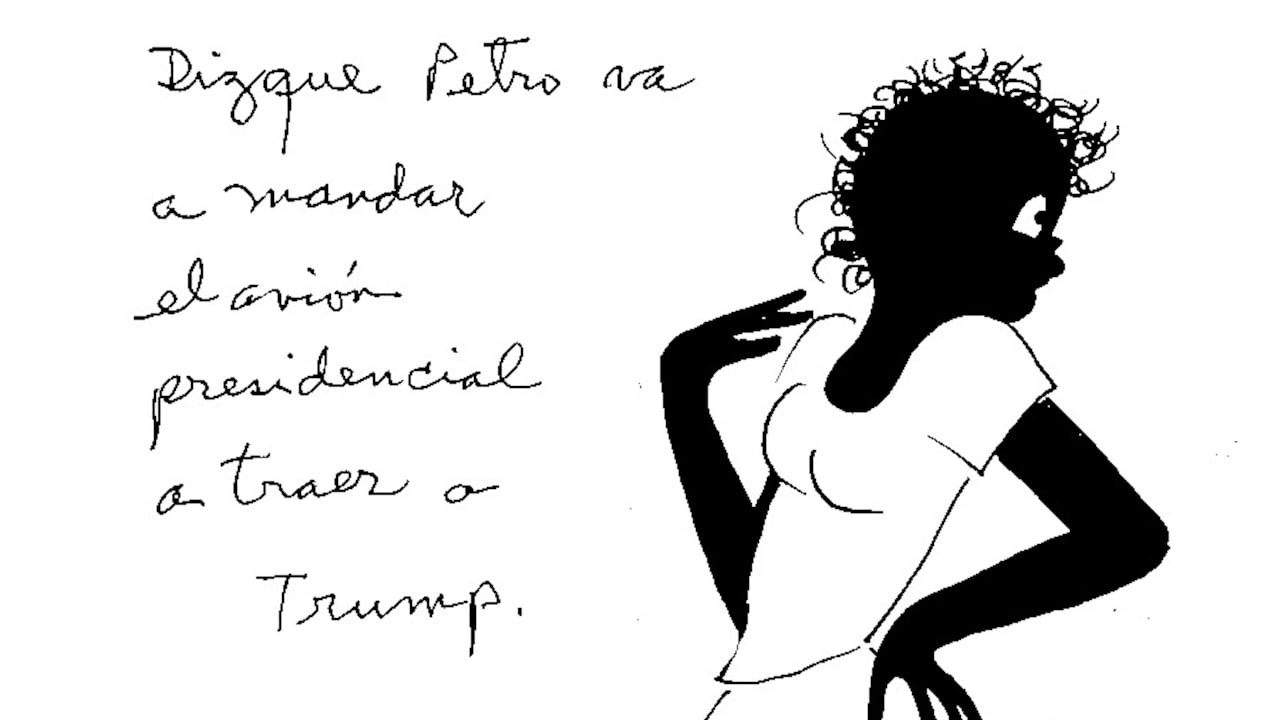 Dizque Petro va
a mandar
el avión
presidencial
a traer a
Trump.